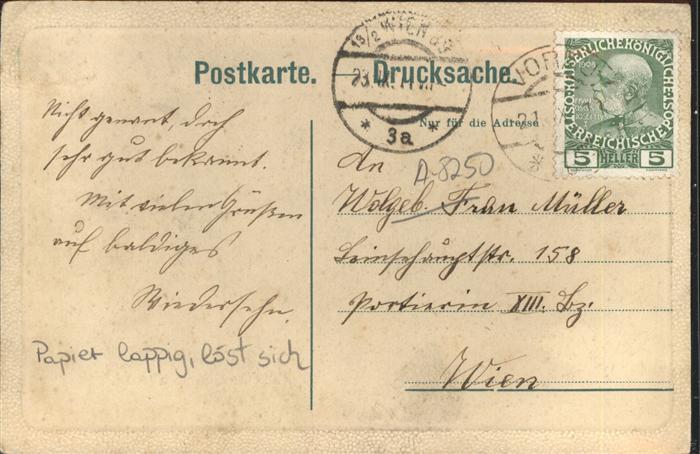 Postkarte. — Drucksache.
Nur für die Adresse
WIEN
23.
3a
VOR
21.
KAISERLICHE KÖNIGLICHE
ÖSTERREICHISCHE POST
1908
5 HELLER 5
Nicht genannt, doch
sehr gut bekannt.
Mit vielen Grüßen
auf baldiges
Wiedersehn.
Papier lappig, löst sich
An
A-8250
Wolgeb. Frau Müller
158
Portierin XIII. Bz.
Wien